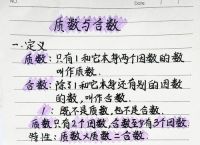 NO.
DATE
质数与合数
一.定义
质数:只有1和它本身两个因数的数
叫作质数.
合数:除了1和它本身还有别的因数
的数,叫作合数.
1:既不是质数,也不是合数.
质数只有2个因数,合数至少有3个因数.
特性:质数×质数=合数.